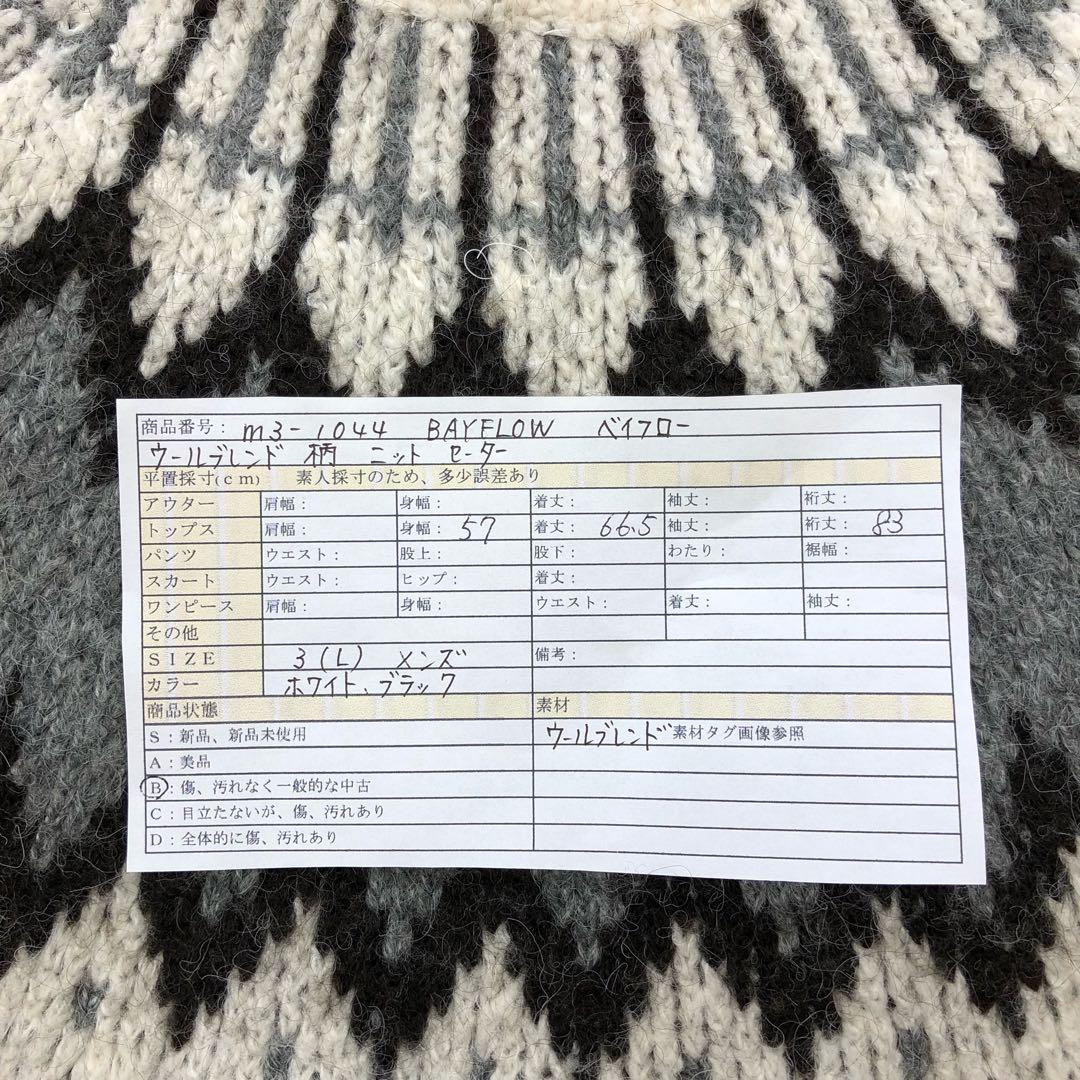 商品番号： m3-1044 BAYFLOW ベイフロー
ウールブレンド 柄 ニット セーター
平置採寸(cm) 素人採寸のため、多少誤差あり
アウター 肩幅： 身幅： 着丈： 袖丈： 裄丈：
トップス 肩幅： 身幅： 57 着丈： 66.5 袖丈： 裄丈： 83
パンツ ウエスト： 股上： 股下： わたり： 裾幅：
スカート ウエスト： ヒップ： 着丈：
ワンピース 肩幅： 身幅： ウエスト： 着丈： 袖丈：
その他
SIZE 3(L) メンズ 備考：
カラー ホワイト、ブラック
商品状態 素材
S：新品、新品未使用 ウールブレンド 素材タグ画像参照
A：美品
B：傷、汚れなく一般的な中古
C：目立たないが、傷、汚れあり
D：全体的に傷、汚れあり